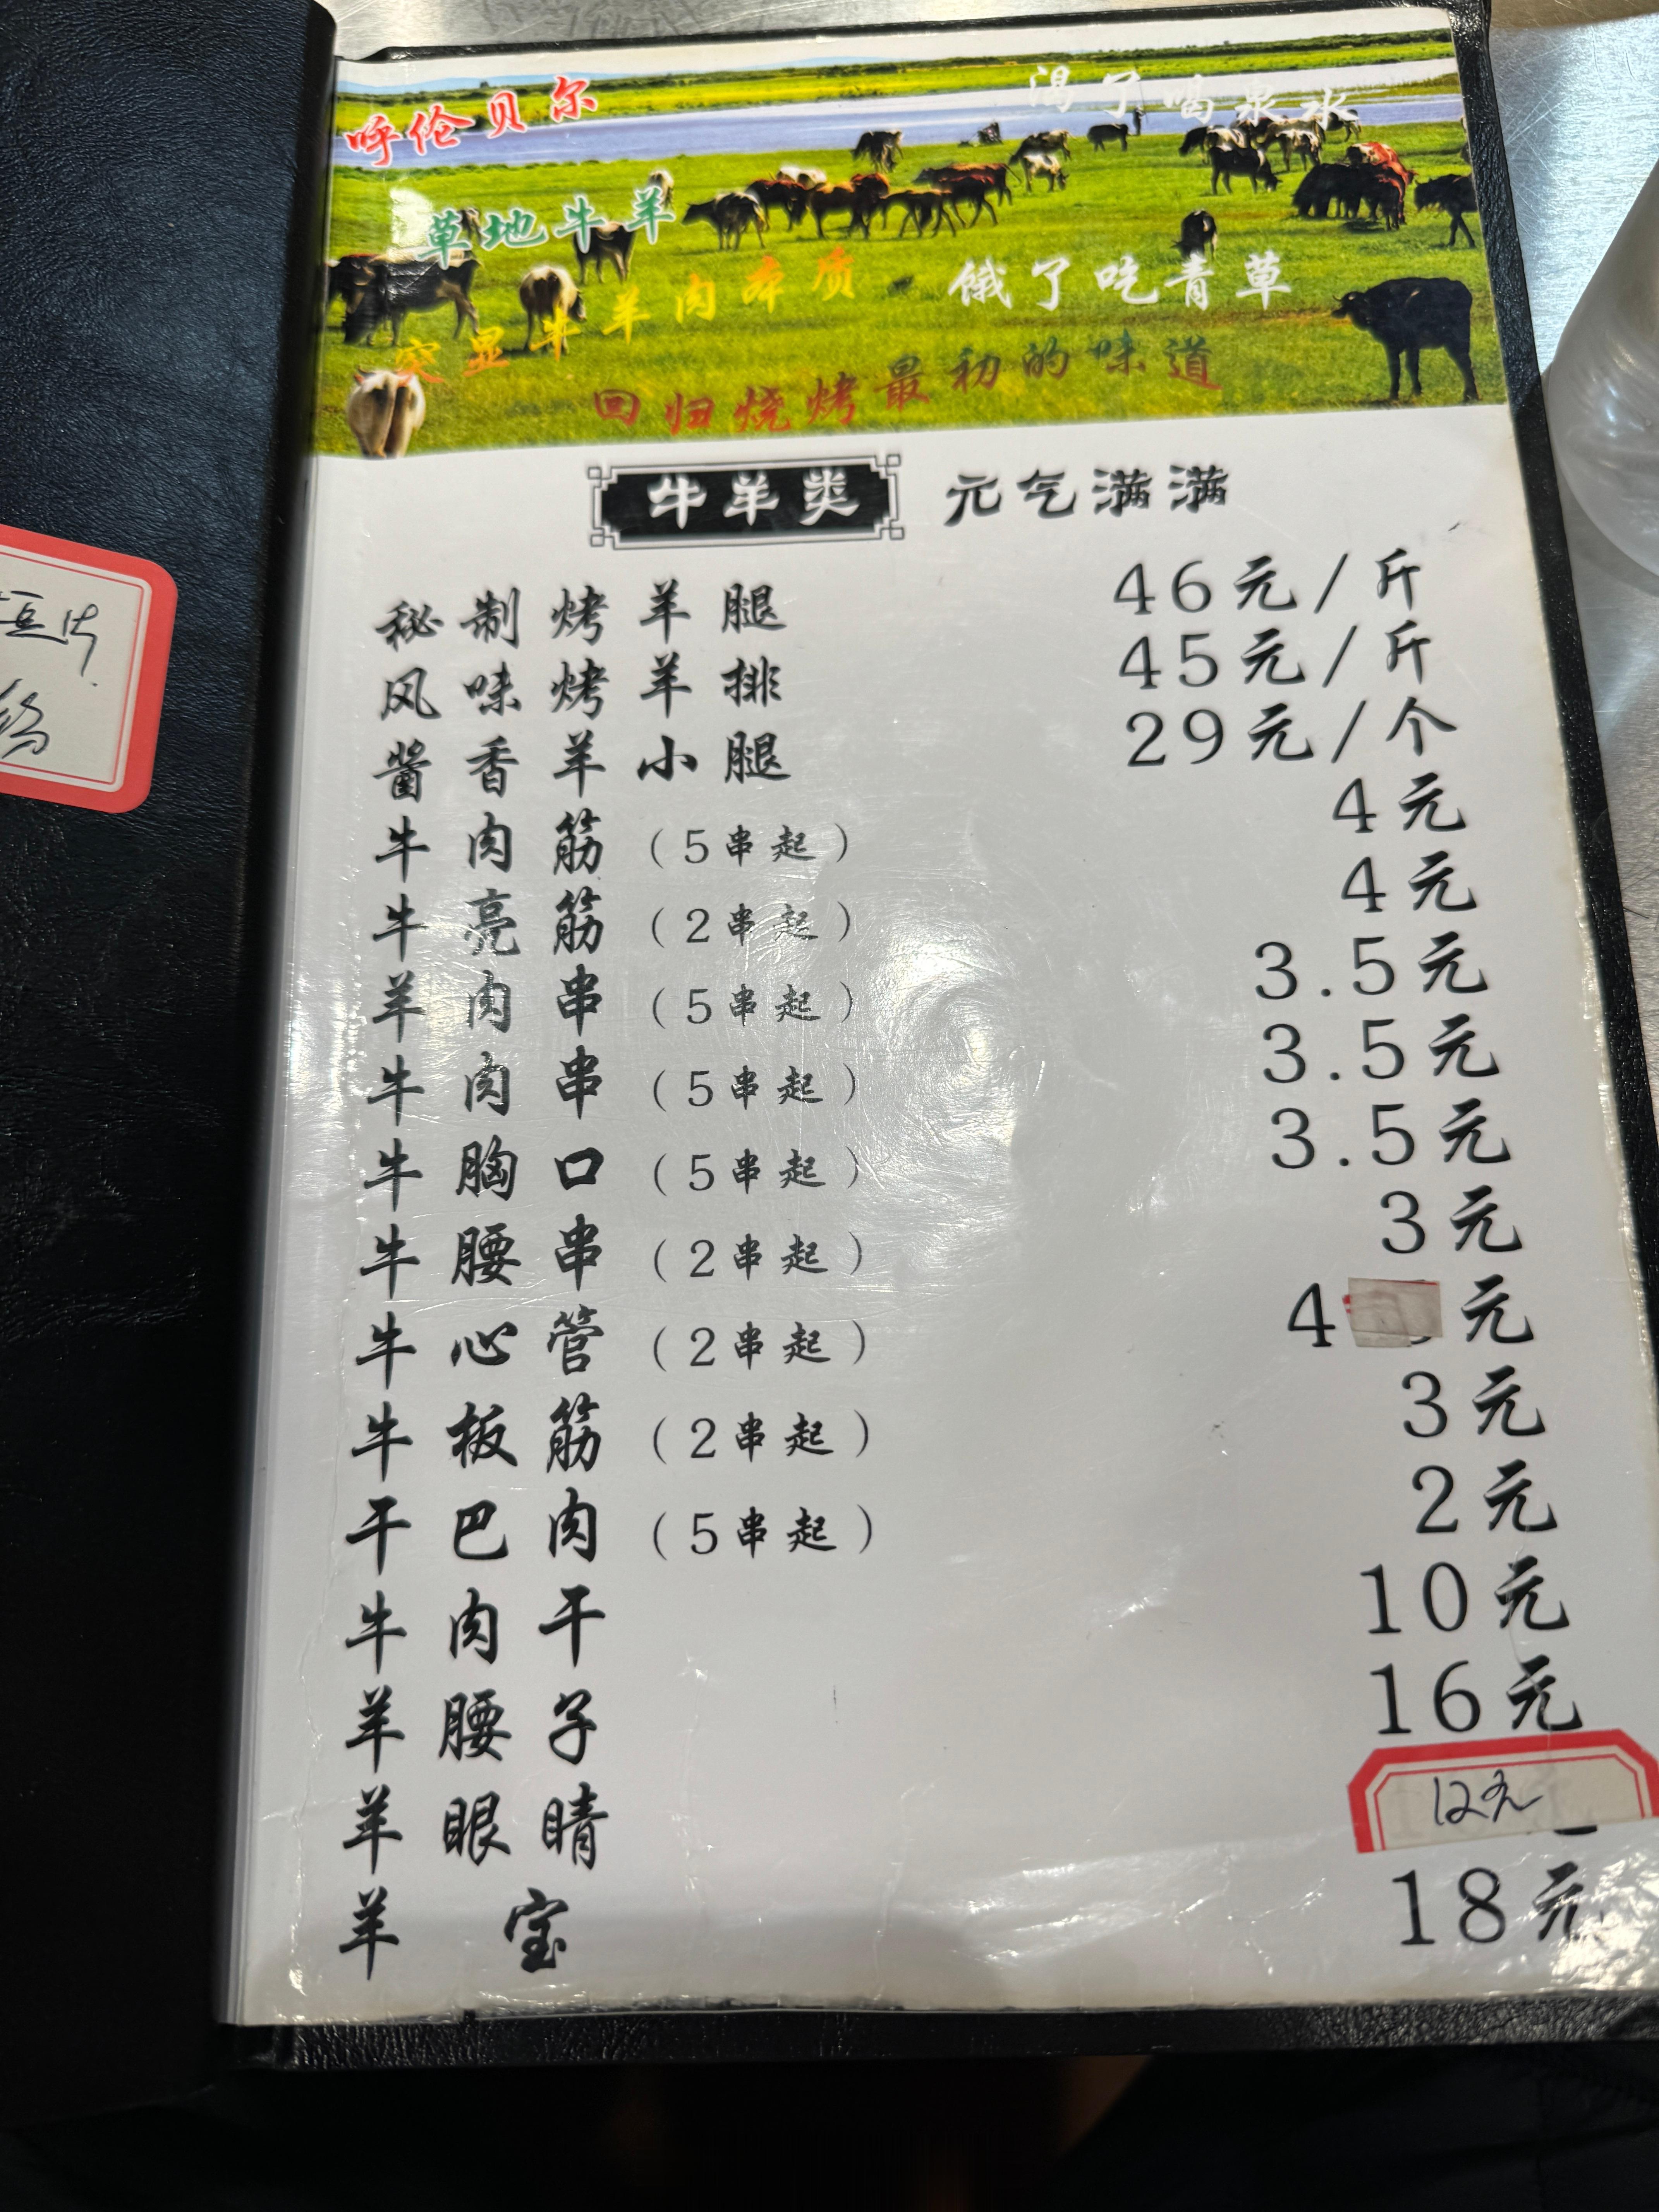 呼伦贝尔
渴了喝泉水
草地牛羊
饿了吃青草
突显牛羊肉本质
回归烧烤最初的味道
牛羊类 元气满满
秘制烤羊腿 46元/斤
风味烤羊排 45元/斤
酱香羊小腿 29元/个
牛肉筋（5串起） 4元
牛亮筋（2串起） 4元
羊肉串（5串起） 3.5元
牛肉串（5串起） 3.5元
牛胸口（5串起） 3.5元
牛腰串（2串起） 3元
牛心管（2串起） 4元
牛板筋（2串起） 3元
干巴肉（5串起） 2元
牛肉干 10元
羊腰子 16元
羊眼睛 12元
羊宝 18元